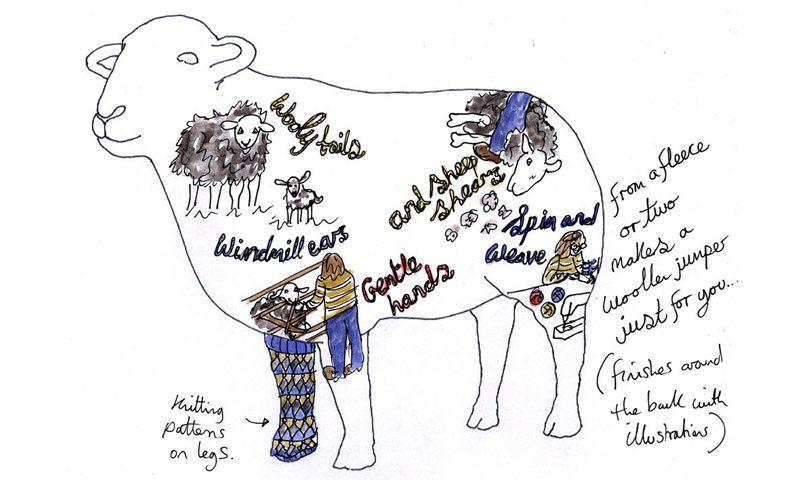 Wooly tails
Windmill ears
and Sheep
Shears
Gentle
hands
Spin and
Weave
from a fleece
or two
makes a
woollen jumper
just for you...
(finishes around
the back with
illustrations)
Knitting
patterns
on legs.